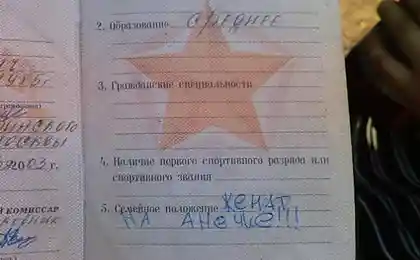 2. Образование среднее
3. Гражданские специальности
4. Наличие первого спортивного разряда или
спортивного звания
5. Семейное положение женат
на анечке!!!
2003 г.
комиссар